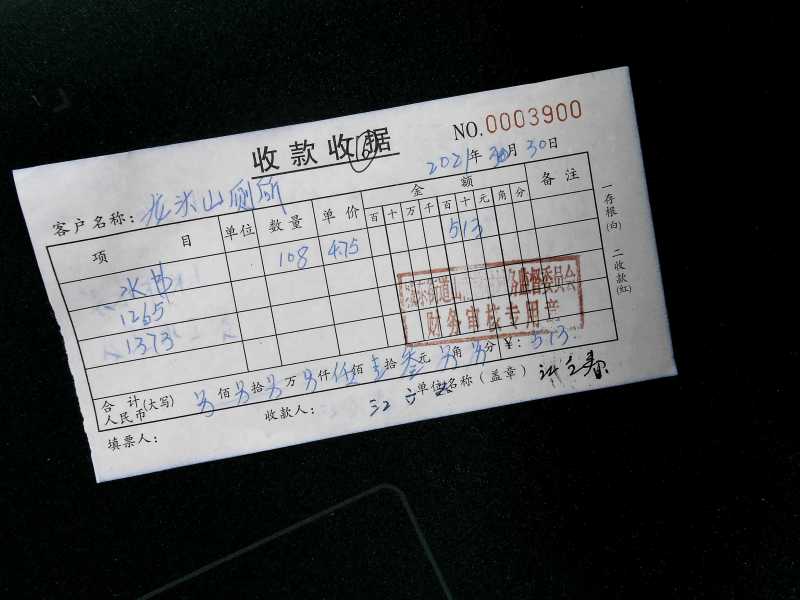 收款收据
NO.0003900
2021年 30月 30日
客户名称：龙头山厕所
项 目 单位 数量 单价 金额 备注
百 十 万 千 百 十 元 角 分
水费 108 4.75 513
1265
1373
财务审核专用章
合计人民币(大写) 佰 拾 万 仟 伍佰 壹拾 叁元 角 分 ¥：513
填票人： 收款人： 单位名称（盖章）
一存根(白) 二收款(红)